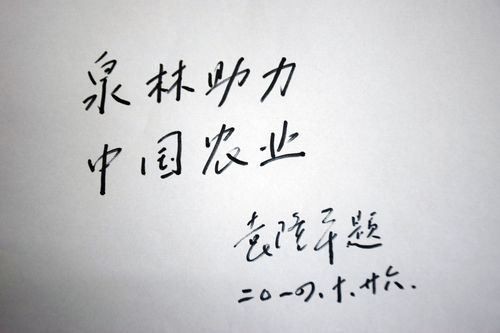 泉林助力
中国农业
袁隆平题
二〇一四.十.廿六.